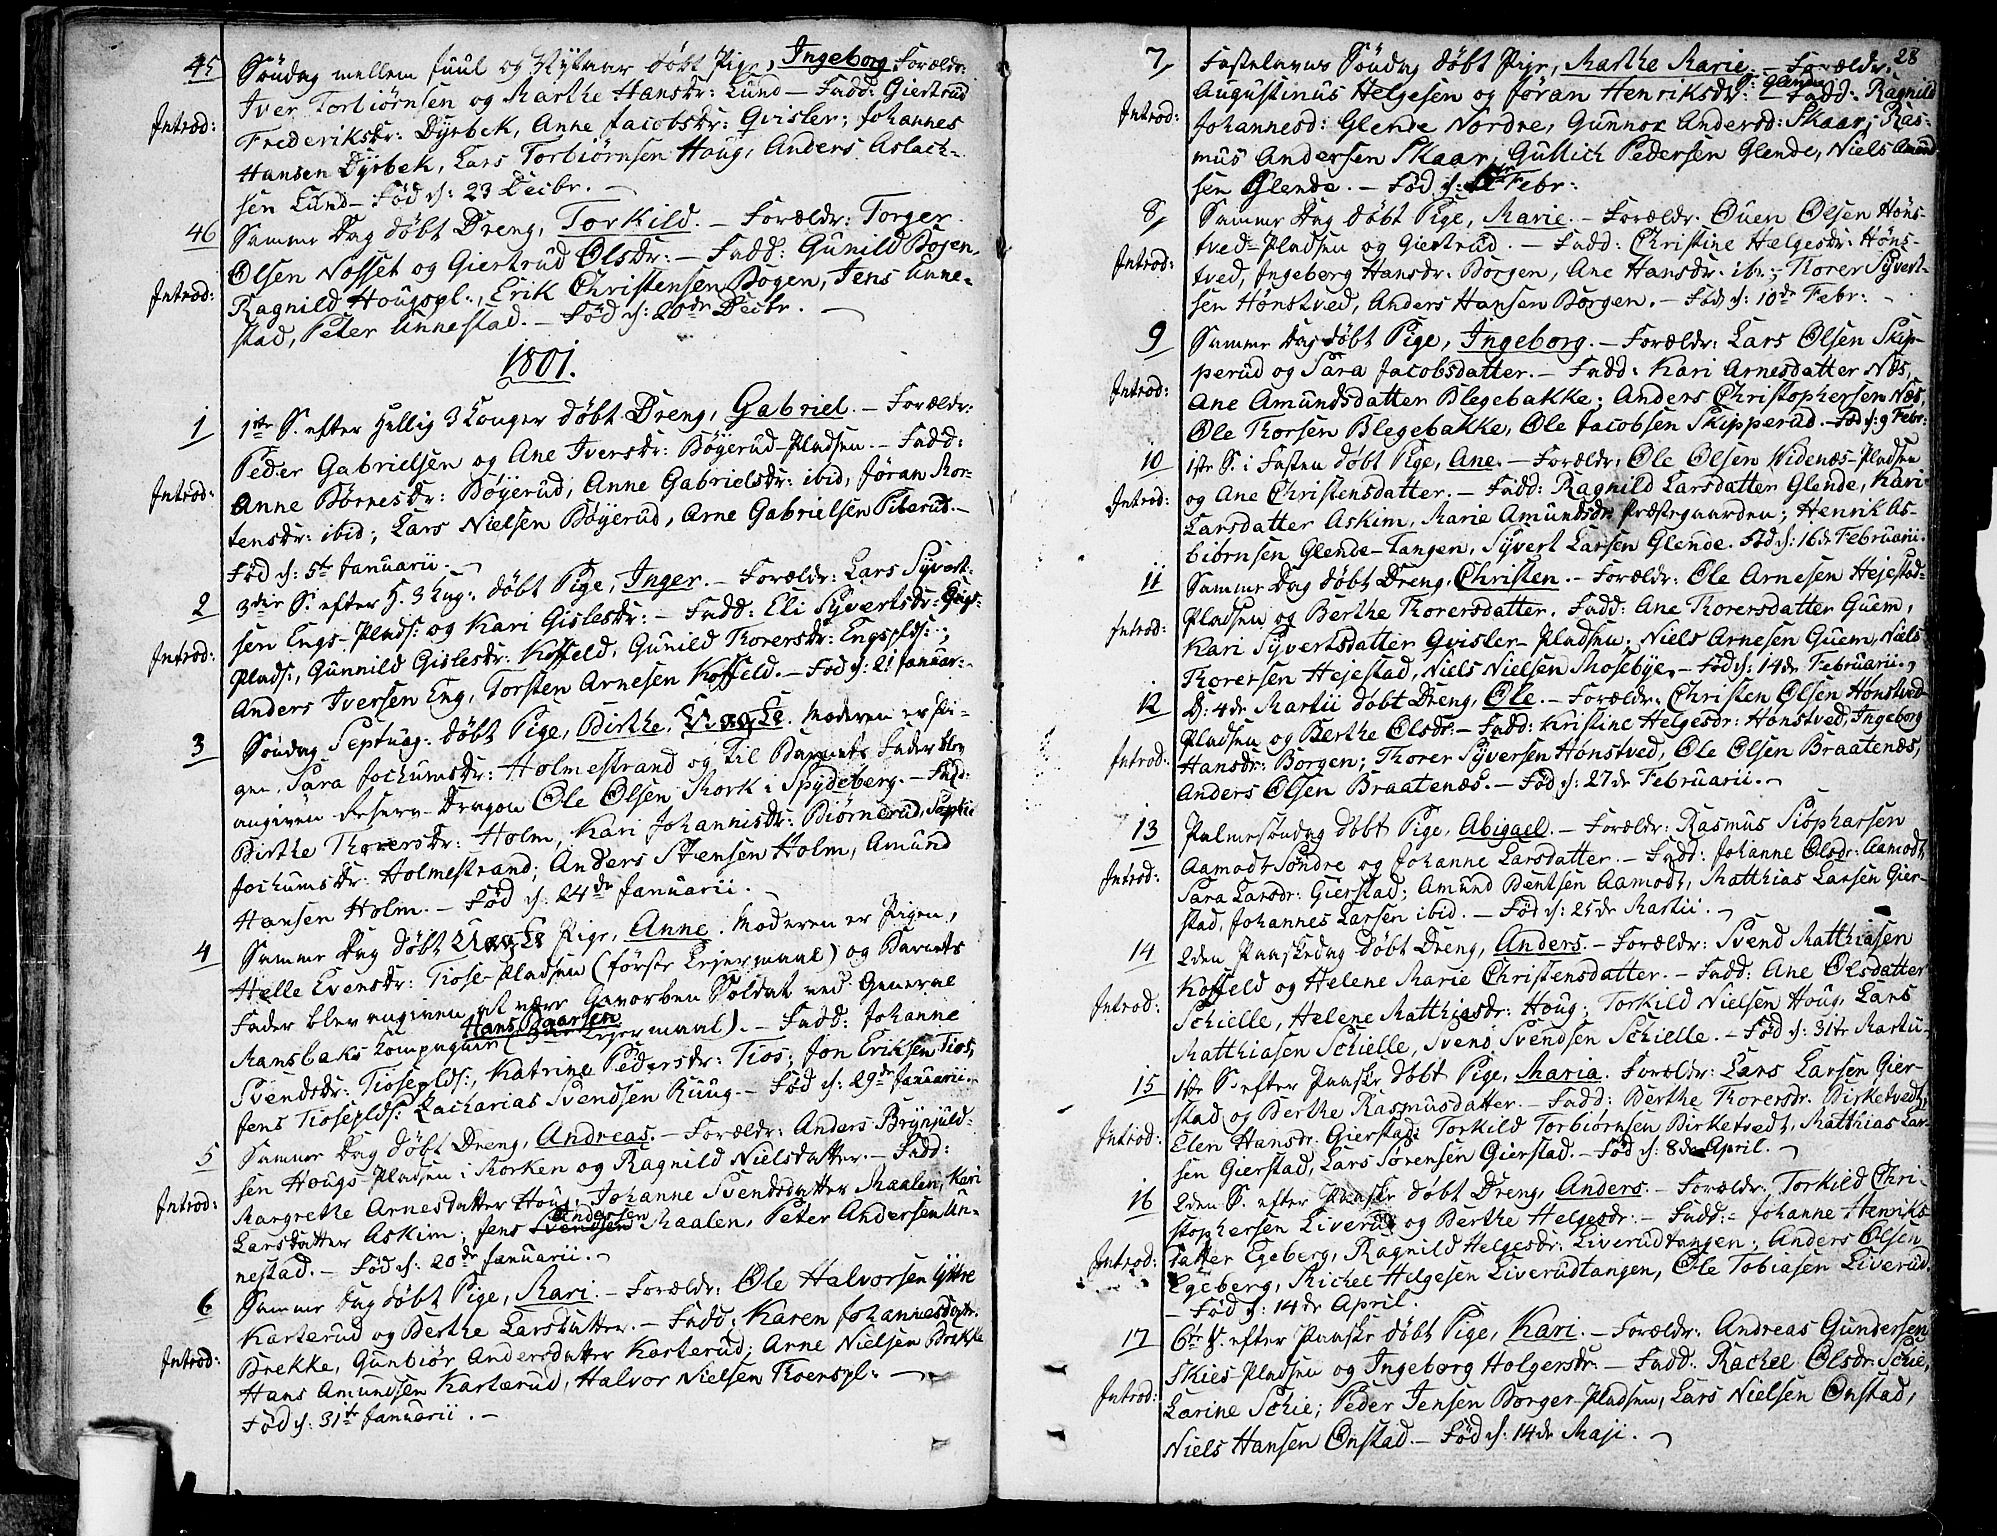 45 Søndag mellem Juul og Nytaar døbt Pige, Ingeborg. Forældr:
Iver Torbiørnsen og Marthe Hansdr: Lund – Fadd: Giertrud
Introd: Frederiksdr: Dyrbek, Anne Jacobsdr: Qvisler; Johannes
Hansen Dyrbek, Lars Torbiørnsen Houg, Anders Aslach-
sen Lund – Fød d: 23 Decbr.
46 Samme Dag døbt Dreng, Torkild. – Forældr: Torger
Olsen Nosset og Giertrud Olsdr: – Fadd: Gunild Bogen,
Introd: Ragnild Hougspl:, Erik Christensen Bogen, Jens Unne-
stad, Peter Unnestad. – Fød d: 20de Decbr.
1801.
1 1ste S. efter Hellig 3 Konger døbt Dreng, Gabriel. – Forældr:
Peder Gabrielsen og Ane Iversdr: Bøyerud-Pladsen. – Fadd:
Introd: Anne Børnesdr: Bøyerud, Anne Gabrielsdr: ibid, Jøran Mor-
tensdr: ibid; Lars Nielsen Bøyerud, Arne Gabrielsen Piterud. –
Fød d: 5te Januarii.
2 3die S. efter H. 3 Kng: døbt Pige, Inger. – Forældr: Lars Syvert-
sen Engs-Plads: og Kari Gislesdr: – Fadd: Eli Syvertsdr: Engs-
Introd: Plads:, Gunnild Gislesdr: Koffeld, Gunild Thorersdr: Engsplds:;
Anders Iversen Eng, Torsten Arnesen Koffeld. – Fød d: 21 Januar:
3 Søndag Septuag: døbt Pige, Birthe, Uægte. Moderen er Pi-
gen Sara Jochumsdr: Holmestrand og til Barnets Fader blev
angiven Reserv-Dragon Ole Olsen Mork i Spydeberg. – Fadd:
Birthe Thorersdr: Holm, Kari Johannisdr: Biørnerud, Sophie
Jochumsdr: Holmestrand; Anders Stensen Holm, Amund
Hansen Holm. – Fød d: 24de Januarii.
4 Samme Dag døbt Uægte Pige, Anne. Moderen er Pigen,
Helle Evensdr: Tiose-Pladsen (første Leiermaal) og Barnets
Fader blev angiven at være Gevorben Soldat ved General
Hans Baarsen
Mansbaks Compagnie ( Leiermaal). – Fadd: Johanne
Svendsdr: Tioseplds:, Katrine Pedersdr: Tios; Jon Eriksen Tios,
Jens Tioseplds: Zacharias Svendsen Ruug. – Fød d: 29de Januarii.
5 Samme Dag døbt Dreng, Andreas. – Forældr: Anders Brynjuld-
sen Hougs-Pladsen i Morken og Ragnild Nielsdatter. – Fadd:
Introd: Margrethe Arnesdatter Houg, Johanne Svendsdatter Maalen, Kari
Larsdatter Askim; Jens Svendsen Andersen Maalen, Peter Andersen Un-
nestad. – Fød d: 20de Januarii.
6 Samme Dag døbt Pige, Mari. – Forældr: Ole Halvorsen Yttre
Karterud og Berthe Larsdatter. – Fadd: Karen Johannesdatr:
Introd: Brekke, Gunbiør Andersdatter Karterud; Arne Nielsen Brekke
Hans Amundsen Karterud, Halvor Nielsen Moenspl:
Fød d: 31te Januarii. –
28
7, Fastelavns Søndag døbt Pige, Marthe Marie. – Forældr:
Augustinus Helgesen og Jøran Henriksdr: S: Glende – Fadd: Ragnild
Introd: Johannesd: Glende Nordre, Gunnor Andersd: Skaar, Ras-
mus Andersen Skaar, Gullich Pedersen Glende, Niels Amund
sen Glende. – Fød d: Febr:
8, Samme Dag døbt Pige, Marie. – Forældr. Ouen Olsen Høns-
tved-Pladsen og Giertrud. – Fadd: Christine Helgesdr: Høns-
Introd: tved, Ingeborg Hansdr: Borgen, Ane Hansdr: ib:; Thorer Syvert-
sen Hønstved, Anders Hansen Borgen. – Fød d: 10de Febr:
9 Samme Dag døbt Pige, Ingeborg. – Forældr: Lars Olsen Skip-
perud og Sara Jacobsdatter. – Fadd: Kari Arnesdatter Næs,
Introd: Ane Amundsdatter Blegebakke; Anders Christophersen Næs,
Ole Thorsen Blegebakke, Ole Jacobsen Skipperud. – Fød d: 9 Febr:
10 1ste S. i Fasten døbt Pige, Ane. – Forældr: Ole Olsen Widenæs-Pladsen
Introd: og Ane Christensdatter. – Fadd: Ragnild Larsdatter Glende, Kari
Larsdatter Askim, Marie Amundsdr Præstegaarden; Henrik As-
biørnsen Glende-Tangen, Syvert Larsen Glende. Fød d: 16de Februarii.
11 Samme Dag døbt Dreng, Christen. – Forældr: Ole Arnesen Hejestad-
Introd: Pladsen og Berthe Thorersdatter. Fadd: Ane Thorersdatter Guem,
Kari Syvertsdatter Qvisler-Pladsen; Niels Arnesen Guem, Niels
Thorersen Hejestad, Niels Nielsen Mosebye, – Fød d: 14de Februarii.
12 D: 4de Martii døbt Dreng, Ole. – Forældr: Christen Olsen Hønstved-
Pladsen og Berthe Olsdr: – Fadd: Kristine Helgesdr: Hønstved, Ingeborg
Introd: Hansdr: Borgen; Thorer Syversen Hønstved, Ole Olsen Braatenæs,
Anders Olsen Braatenæs. – Fød d: 27de Februarii.
13 Palmesøndag døbt Pige, Abigael. – Forældr: Rasmus Siøpharsen
Introd: Aamodt Søndre og Johanne Larsdatter. – Fadd: Johanne Olsdr: Aamodt,
Sara Larsdr: Gierstad; Amund Bentsen Aamodt, Matthias Larsen Gier-
stad, Johannes Larsen ibid. – Fød d: 25de Martii.
14 2den Paaskedag døbt Dreng, Anders. – Forældr: Svend Matthiasen
Koffeld og Helene Marie Christensdatter. – Fadd: Ane Olsdatter
Introd: Schielle, Helene Matthiasdr: Houg; Torkild Nielsen Houg, Lars
Matthiasen Schielle, Svend Svendsen Schielle. – Fød d: 31te Martii.
15 1ste S. efter Paaske døbt Pige, Maria. Forældr: Lars Larsen Gier-
stad og Berthe Rasmusdatter. – Fadd: Berthe Thorersdr. Birketvedt,
Introd: Elen Hansdr. Gierstad; Torkild Torbiørnsen Birketvedt, Matthias Lar-
sen Gierstad, Lars Sørensen Gierstad. – Fød d: 8de April.
16 2den S. efter Paaske døbt Dreng, Anders. – Forældr. Torkild Chri-
stophersen Liverud og Berthe Helgesdr: – Fadd: Johanne Henriks-
Introd: datter Egeberg, Ragnild Helgesdr: Liverudtangen; Anders Olsen
Egeberg, Michel Helgesen Liverudtangen, Ole Tobiasen Liverud.
– Fød d: 14de April.
17 6te S. efter Paaske døbt Pige, Kari. – Forældr: Andreas Gundersen
Skies-Pladsen og Ingeborg Holgersdr: – Fadd: Rachel Olsdr: Schie,
Introd: Larine Schie; Peder Jensen Borger-Pladsen, Lars Nielsen Onstad,
Niels Hansen Onstad. – Fød d: 14de Maji.